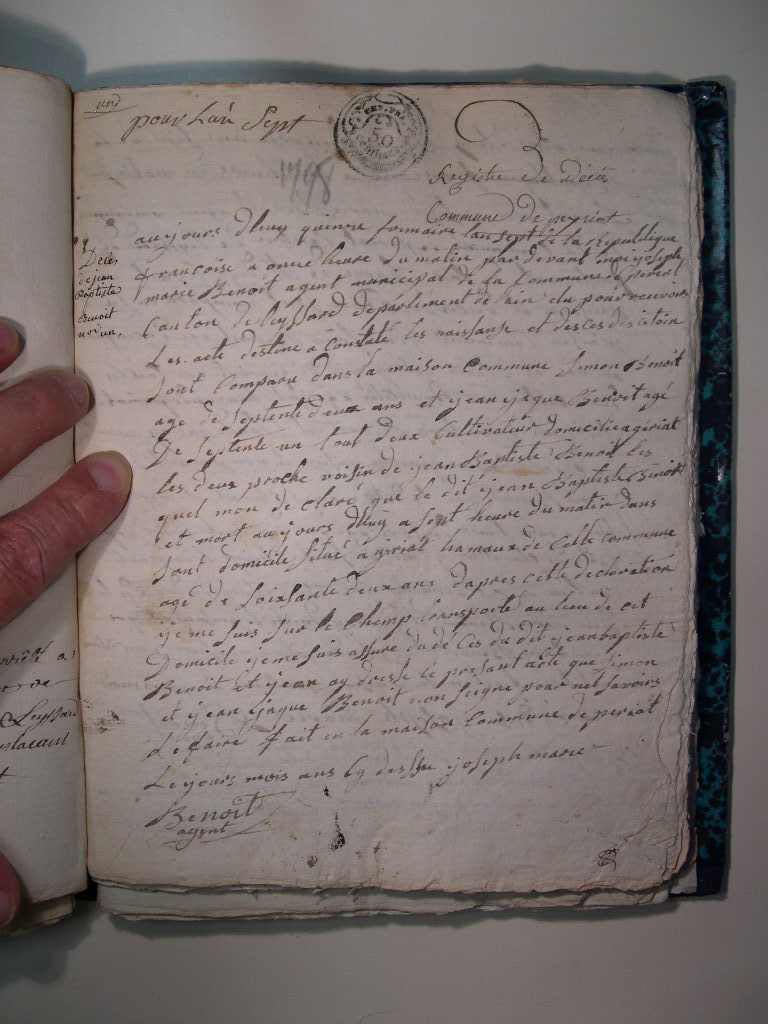 pour Lan Sept
50
1798
Registre de Décès
Commune de peyriat
Décès
de jean
Baptiste
Benoit
aujours dhuy quinze frimaire lan sept de la republique
francoise a onze heure du matin par devant moi ijoseph
marie Benoit agent municipal de la Commune de periat
Canton de leyssard departement de lain elu pour recevoir
Les acte destine a Constaté les naissanse et des ces des citoin
sont Comparu dans la maison Commune simon Benoit
age de septente deux ans et ijean ijaque Benoit agé
De septente un tout deux Cultivateur domicilié a giriat
les deux proche voisin de ijean Baptiste Benoit les
quel mon de Claré que le dit ijean Baptiste Benoit
et mort aujours dhuy a sept heure du matin dans
sont domicile situé a giriat hamaux de Cette commune
agé de soixsante deux ans dapres cette declaration
ije me suis sur le Champ transporté au lieu de cet
Domicile ije me suis assuré du dé Ces du dit ijean baptiste
Benoit et ijean ay dressé le presant acte que simon
et ijean ijaque Benoit non signe pour net savoire
Le faire fait en la maison Commune de periat
Le ijours mois ans Cy dessu ijoseph marie
Benoit
agent
Leyssard